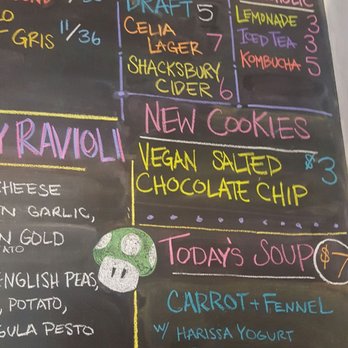 GRIS 11/36
DRAFT 5
CELIA
LAGER 7
SHACKSBURY
CIDER 6
LEMONADE 3
ICED TEA 3
KOMBUCHA 5
Y RAVIOLI
CHEESE
N GARLIC,
N GOLD
ENGLISH PEAS,
POTATO,
GULA PESTO
NEW COOKIES
VEGAN SALTED
CHOCOLATE CHIP
$3
TODAY'S SOUP $7
CARROT + FENNEL
W/ HARISSA YOGURT